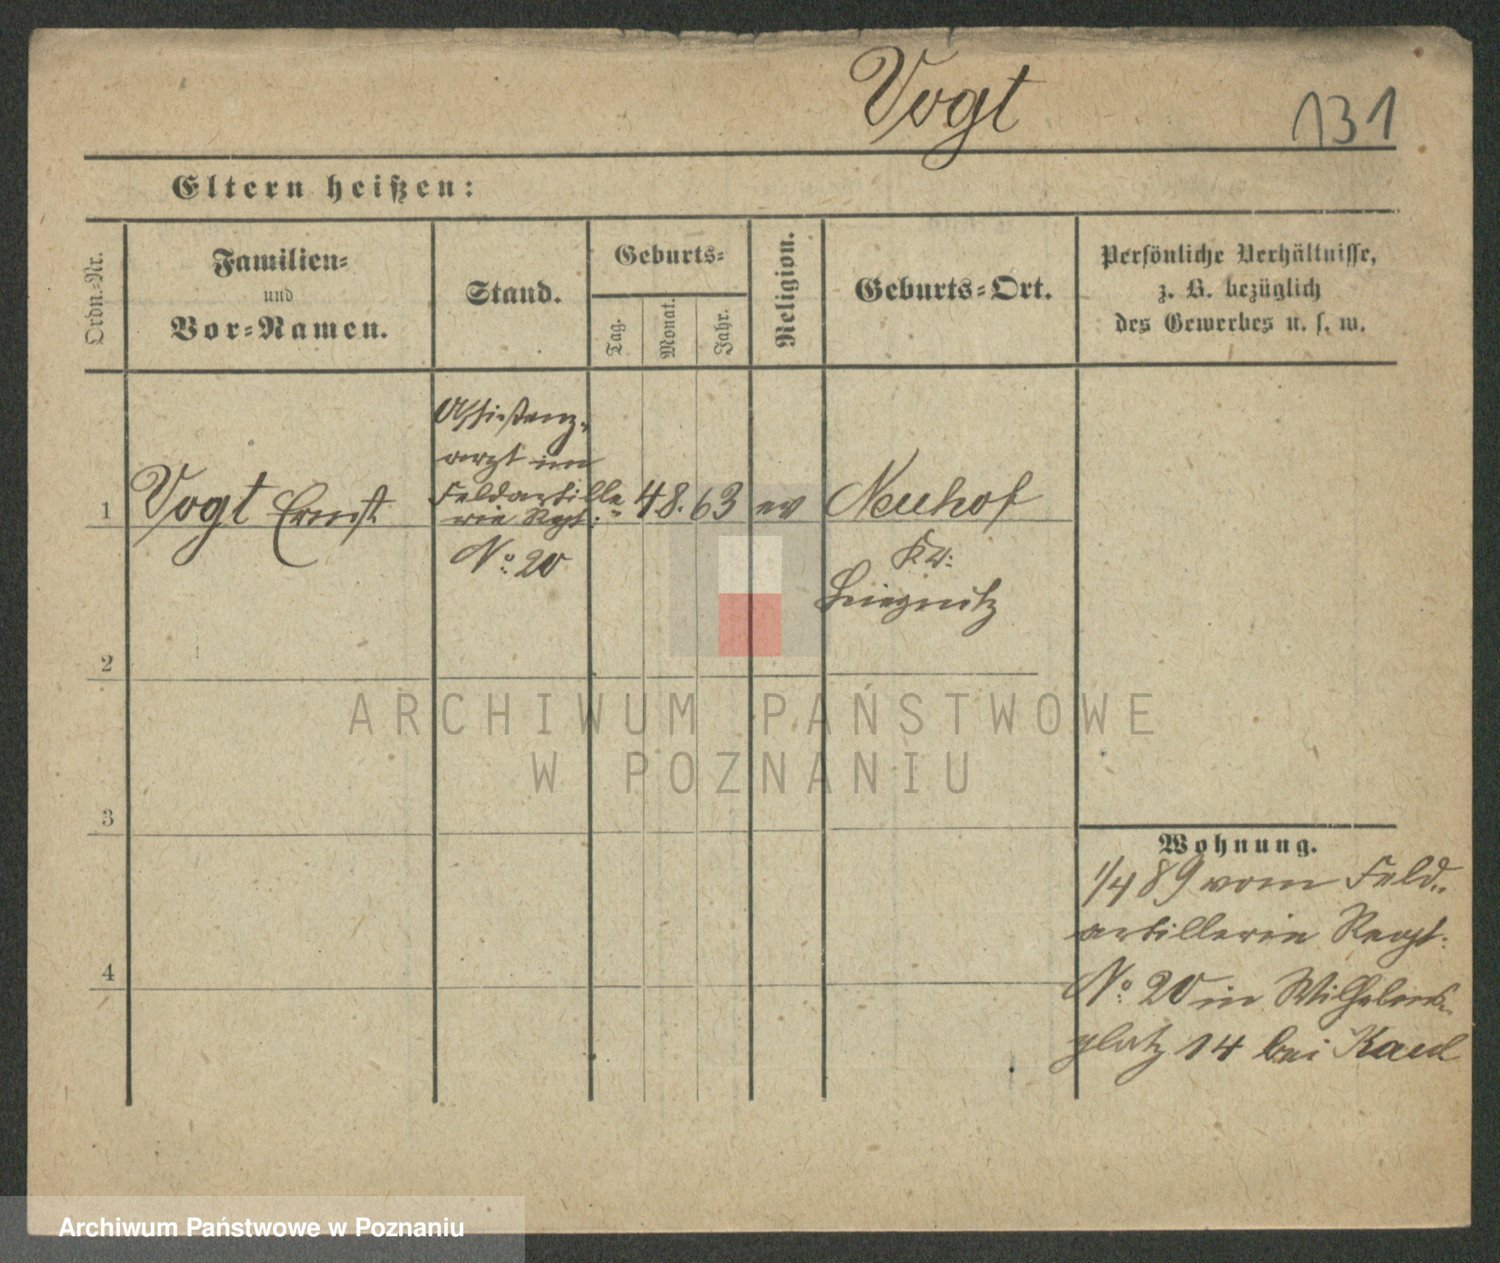 Vogt
131
Eltern heißen:
Ordn.-Nr.
Familien-
und
Vor-Namen.
Stand.
Geburts-
Tag.
Monat.
Jahr.
Religion.
Geburts-Ort.
Persönliche Verhältnisse,
z. B. bezüglich
des Gewerbes u. s. w.
1
Vogt Ernst
Assistenz-
arzt im
Feldartille
rie Regt:
No. 20
4 8. 63
ev
Neuhof
Kr:
Liegnitz
2
3
4
Wohnung.
1/4 89 vom Feld-
artillerie Regt:
No. 20 in Wilhelms-
platz 14 bei
ARCHIWUM PAŃSTWOWE
W POZNANIU
Archiwum Państwowe w Poznaniu